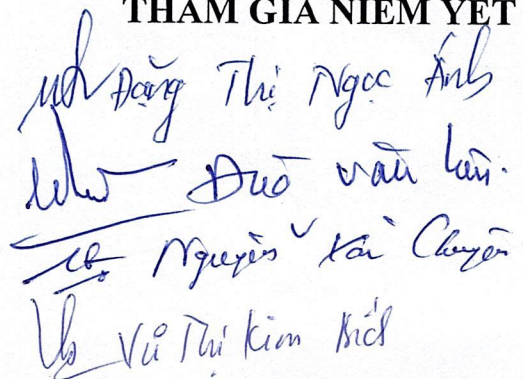 THAM GIA NIÊM YẾT
Đặng Thị Ngọc Ánh
văn
Nguyễn Chuyên
Vũ Thị Kim Bích